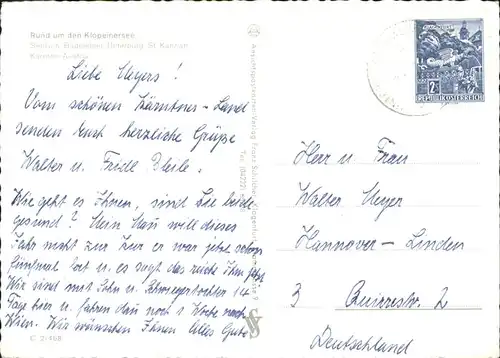 Rund um den Klopeinersee
Seelach Unterburg St. Kanzian
Kärnten Austria
Liebe Meyers!
Vom schönen Kärntner-Land
senden Euch herzliche Grüße
Walter u. Friedl
Wie geht es Ihnen, sind Sie beide
gesund? Mein Mann will dieses
Jahr nicht zur Kur er war jetzt schon
fünfmal fort u. es sagt das reicht ihm jetzt
Wir sind mit Sohn u. Schwiegertochter 14
Tage hier u. fahren dann noch 1 Woche nach
Wien. Wir wünschen Ihnen Alles Gute
C 2/468
Herr u Frau
Walter Meyer
Hannover-Linden
3 2
Deutschland
2 S
REPUBLIK ÖSTERREICH